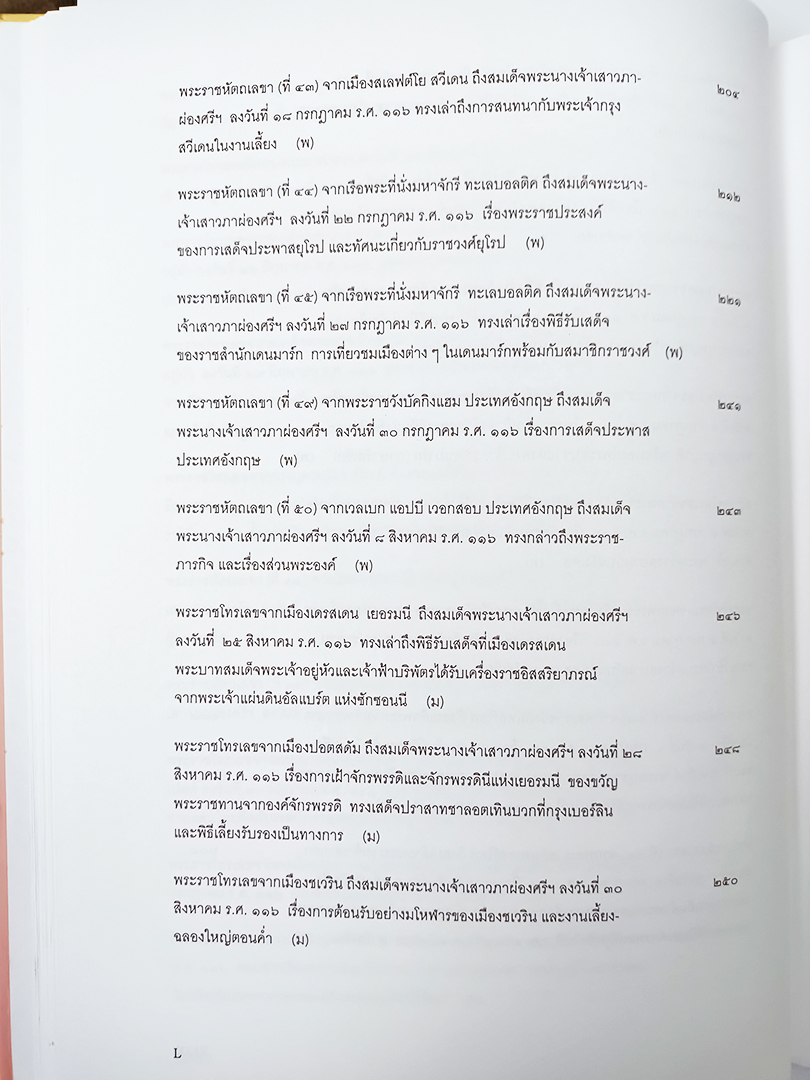 พระราชหัตถเลขา (ที่ ๔๓) จากเมืองสเลฟต์โย สวีเดน ถึงสมเด็จพระนางเจ้าเสาวภา- ๒๐๔
ผ่องศรีฯ ลงวันที่ ๑๘ กรกฎาคม ร.ศ. ๑๑๖ ทรงเล่าถึงการสนทนากับพระเจ้ากรุง
สวีเดนในงานเลี้ยง (พ)
พระราชหัตถเลขา (ที่ ๔๔) จากเรือพระที่นั่งมหาจักรี ทะเลบอลติค ถึงสมเด็จพระนาง- ๒๑๒
เจ้าเสาวภาผ่องศรีฯ ลงวันที่ ๒๒ กรกฎาคม ร.ศ. ๑๑๖ เรื่องพระราชประสงค์
ของการเสด็จประพาสยุโรป และทัศนะเกี่ยวกับราชวงศ์ยุโรป (พ)
พระราชหัตถเลขา (ที่ ๔๕) จากเรือพระที่นั่งมหาจักรี ทะเลบอลติค ถึงสมเด็จพระนาง- ๒๒๑
เจ้าเสาวภาผ่องศรีฯ ลงวันที่ ๒๗ กรกฎาคม ร.ศ. ๑๑๖ ทรงเล่าเรื่องพิธีรับเสด็จ
ของราชสำนักเดนมาร์ก การเที่ยวชมเมืองต่าง ๆ ในเดนมาร์กพร้อมกับสมาชิกราชวงศ์ (พ)
พระราชหัตถเลขา (ที่ ๔๙) จากพระราชวังบัคกิงแฮม ประเทศอังกฤษ ถึงสมเด็จ ๒๔๑
พระนางเจ้าเสาวภาผ่องศรีฯ ลงวันที่ ๓๐ กรกฎาคม ร.ศ. ๑๑๖ เรื่องการเสด็จประพาส
ประเทศอังกฤษ (พ)
พระราชหัตถเลขา (ที่ ๕๐) จากเวลเบก แอปบี เวอกสอบ ประเทศอังกฤษ ถึงสมเด็จ ๒๔๓
พระนางเจ้าเสาวภาผ่องศรีฯ ลงวันที่ ๘ สิงหาคม ร.ศ. ๑๑๖ ทรงกล่าวถึงพระราช-
ภารกิจ และเรื่องส่วนพระองค์ (พ)
พระราชโทรเลขจากเมืองเดรสเดน เยอรมนี ถึงสมเด็จพระนางเจ้าเสาวภาผ่องศรีฯ ๒๔๖
ลงวันที่ ๒๕ สิงหาคม ร.ศ. ๑๑๖ ทรงเล่าถึงพิธีรับเสด็จที่เมืองเดรสเดน
พระบาทสมเด็จพระเจ้าอยู่หัวและเจ้าฟ้าบริพัตรได้รับเครื่องราชอิสสริยาภรณ์
จากพระเจ้าแผ่นดินอัลแบร์ต แห่งซักซอนนี (ม)
พระราชโทรเลขจากเมืองปอตสดัม ถึงสมเด็จพระนางเจ้าเสาวภาผ่องศรีฯ ลงวันที่ ๒๘ ๒๔๘
สิงหาคม ร.ศ. ๑๑๖ เรื่องการเฝ้าจักรพรรดิและจักรพรรดินีแห่งเยอรมนี ของขวัญ
พระราชทานจากองค์จักรพรรดิ ทรงเสด็จปราสาทชาลอตเทินบวกที่กรุงเบอร์ลิน
และพิธีเลี้ยงรับรองเป็นทางการ (ม)
พระราชโทรเลขจากเมืองชเวริน ถึงสมเด็จพระนางเจ้าเสาวภาผ่องศรีฯ ลงวันที่ ๓๐ ๒๕๐
สิงหาคม ร.ศ. ๑๑๖ เรื่องการต้อนรับอย่างมโหฬารของเมืองชเวริน และงานเลี้ยง-
ฉลองใหญ่ตอนค่ำ (ม)
L